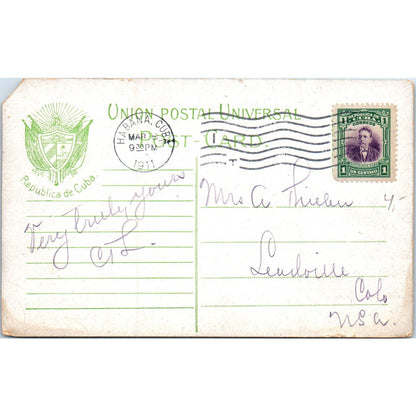 UNION POSTAL UNIVERSAL
POST-CARD.
Republica de Cuba.
HABANA, CUBA
MAR
9 30 PM
1911
1
T
1 1
UN CENTAVO
Very truly yours
Mrs A Thielen
4,-
Leadville
Colo
USA.